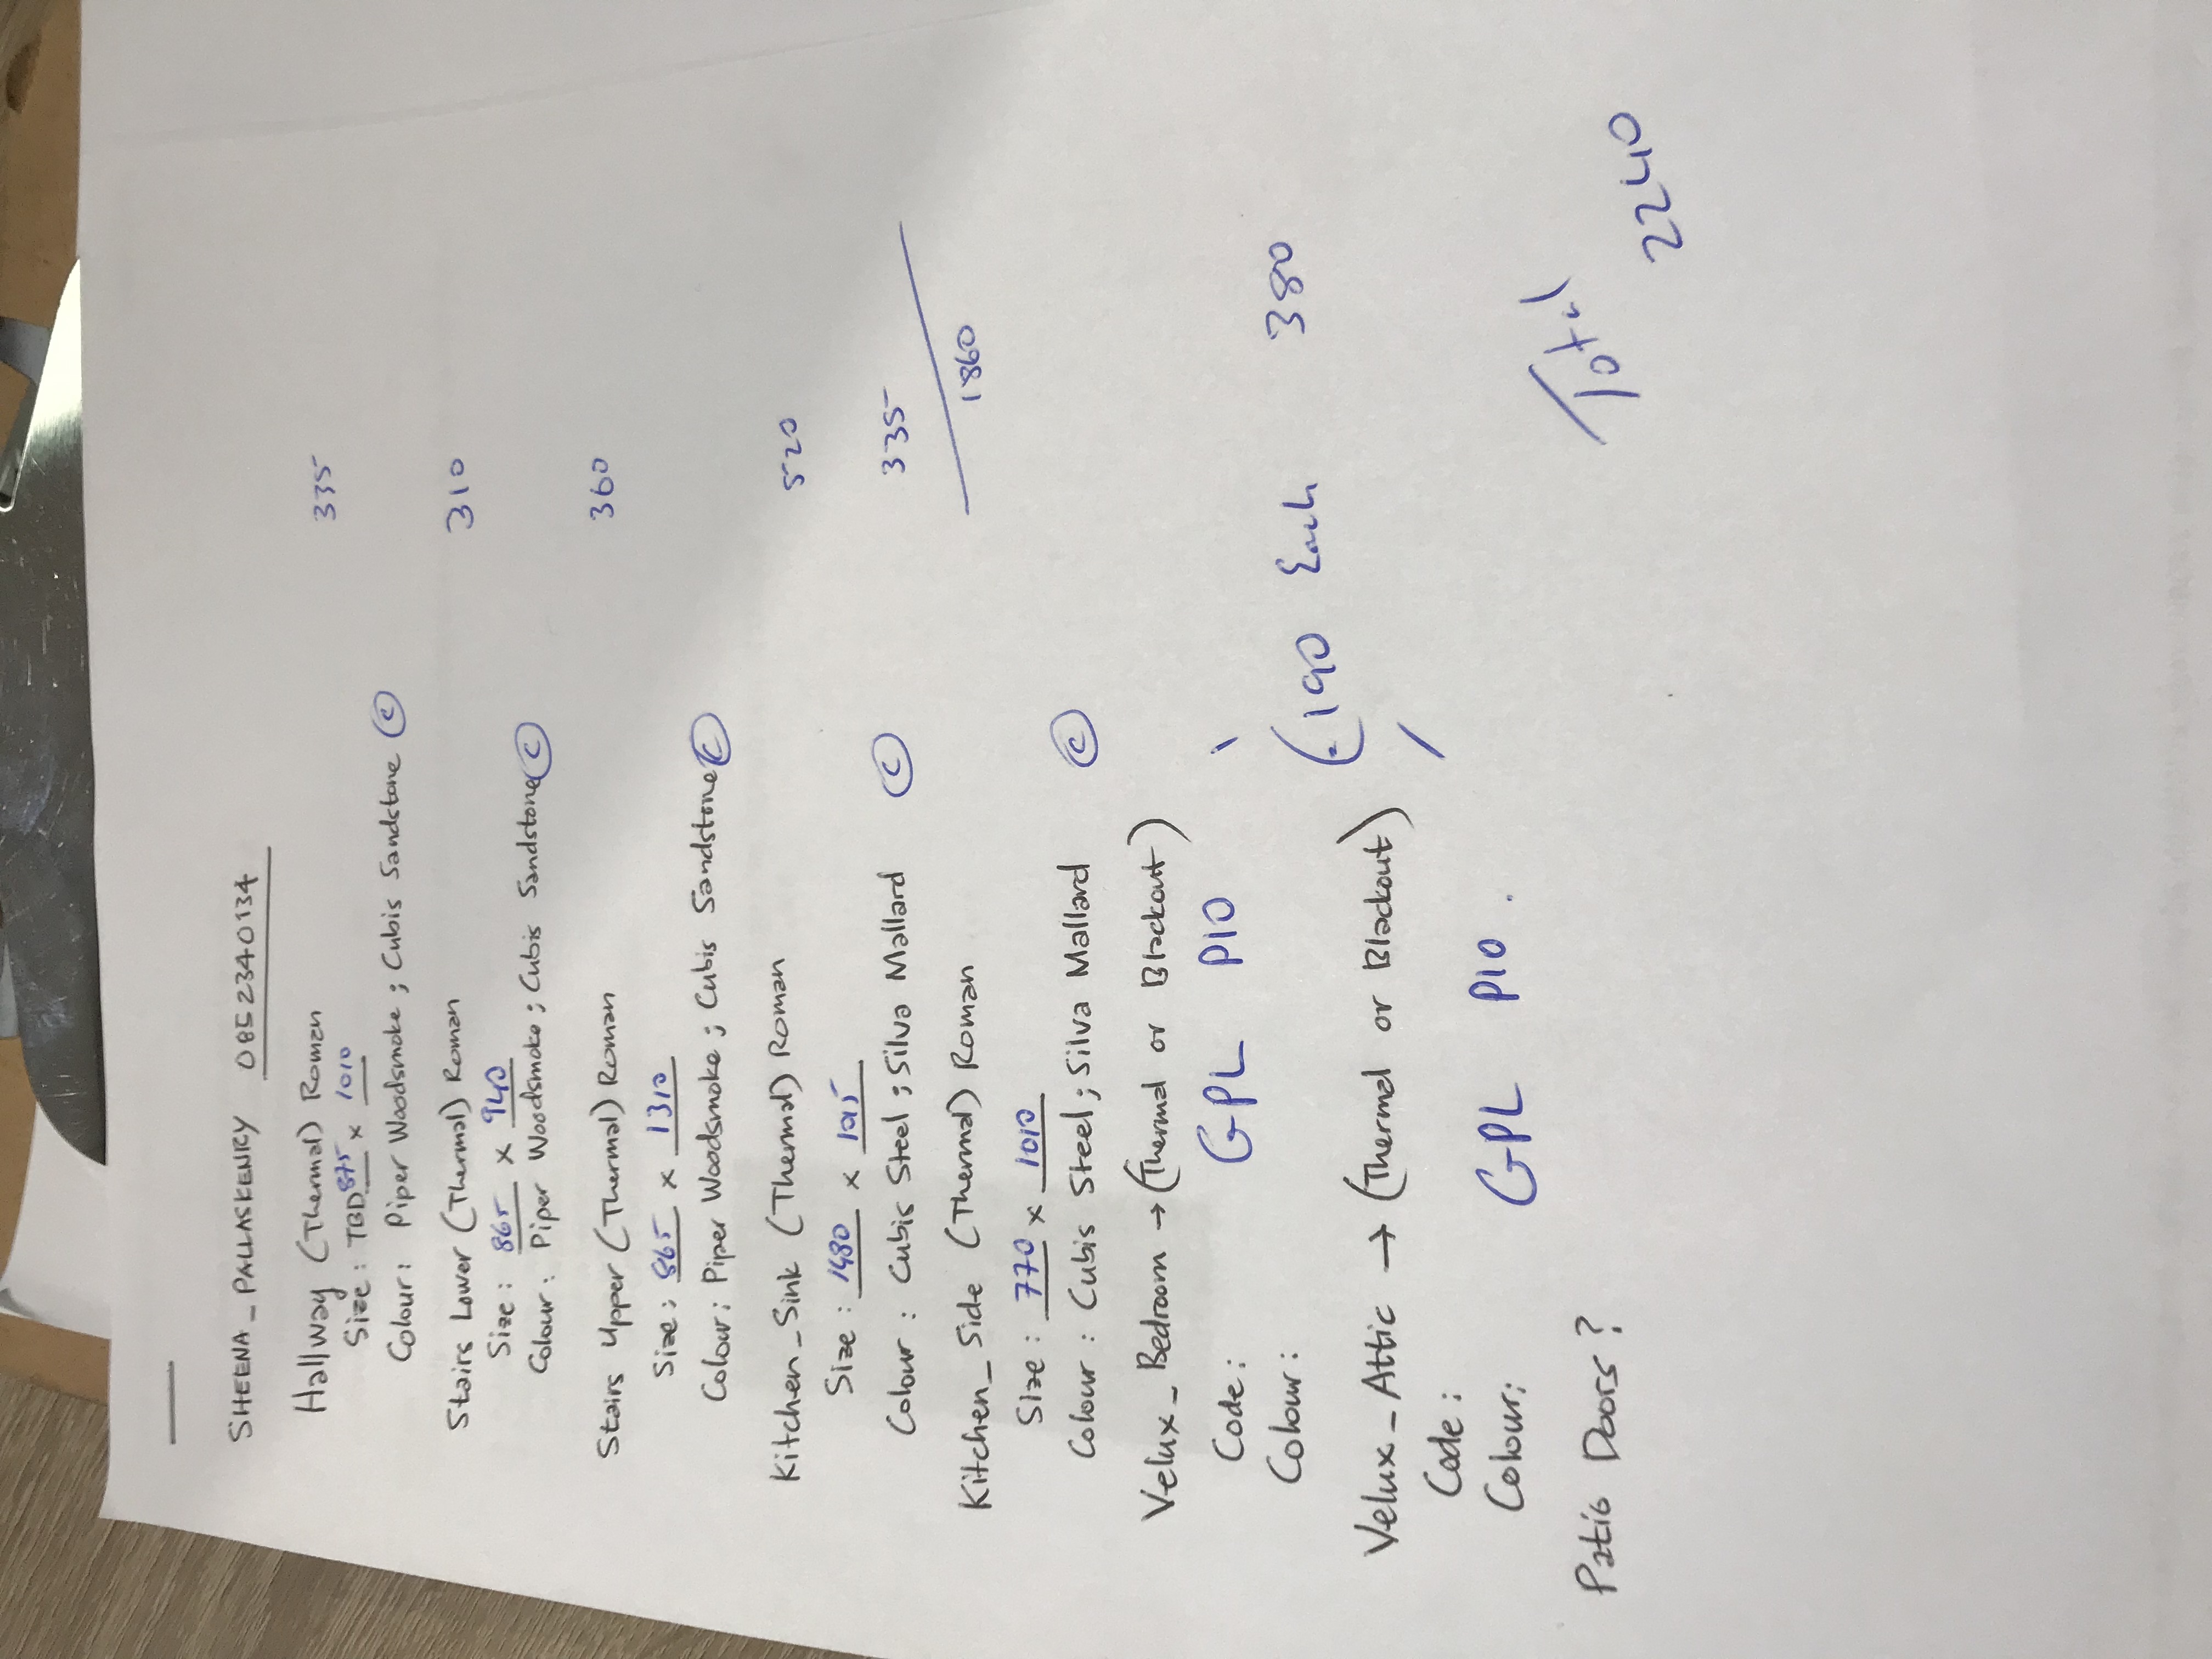 SHEENA_PALLASKENRY 0852340134
Hallway (Thermal) Roman 335
Size: TBD 875 x 1010
Colour: Piper Woodsmoke; Cubis Sandstone C
Stairs Lower (Thermal) Roman 310
Size: 865 x 940
Colour: Piper Woodsmoke; Cubis Sandstone C
Stairs Upper (Thermal) Roman 360
Size: 865 x 1310
Colour: Piper Woodsmoke; Cubis Sandstone C
Kitchen_Sink (Thermal) Roman 520
Size: 1480 x 1015
Colour: Cubis Steel; Silva Mallard C 335
Kitchen_Side (Thermal) Roman 1860
Size: 770 x 1010
Colour: Cubis Steel; Silva Mallard C
Velux_Bedroom → (Thermal or Blackout)
Code: GPL P10
Colour: (190 Each 380
Velux_Attic → (Thermal or Blackout)
Code:
Colour: GPL P10.
Patio Doors? Total 2240